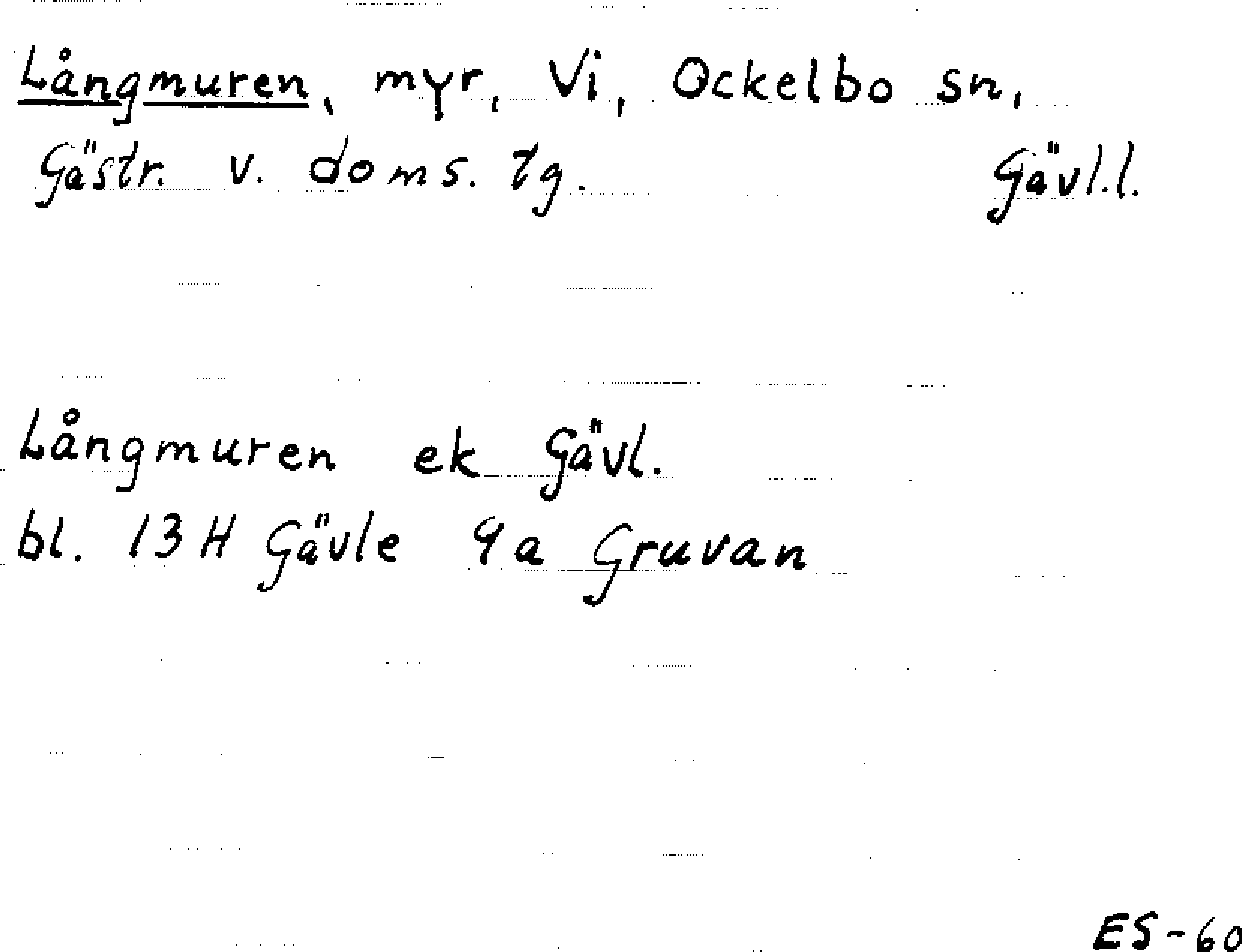 Långmuren, myr, Vi, Ockelbo sn,
Gästr. v. doms. tg. Gävl.l.
Långmuren ek Gävl.
bl. 13 H Gävle 9a Gruvan
ES-60